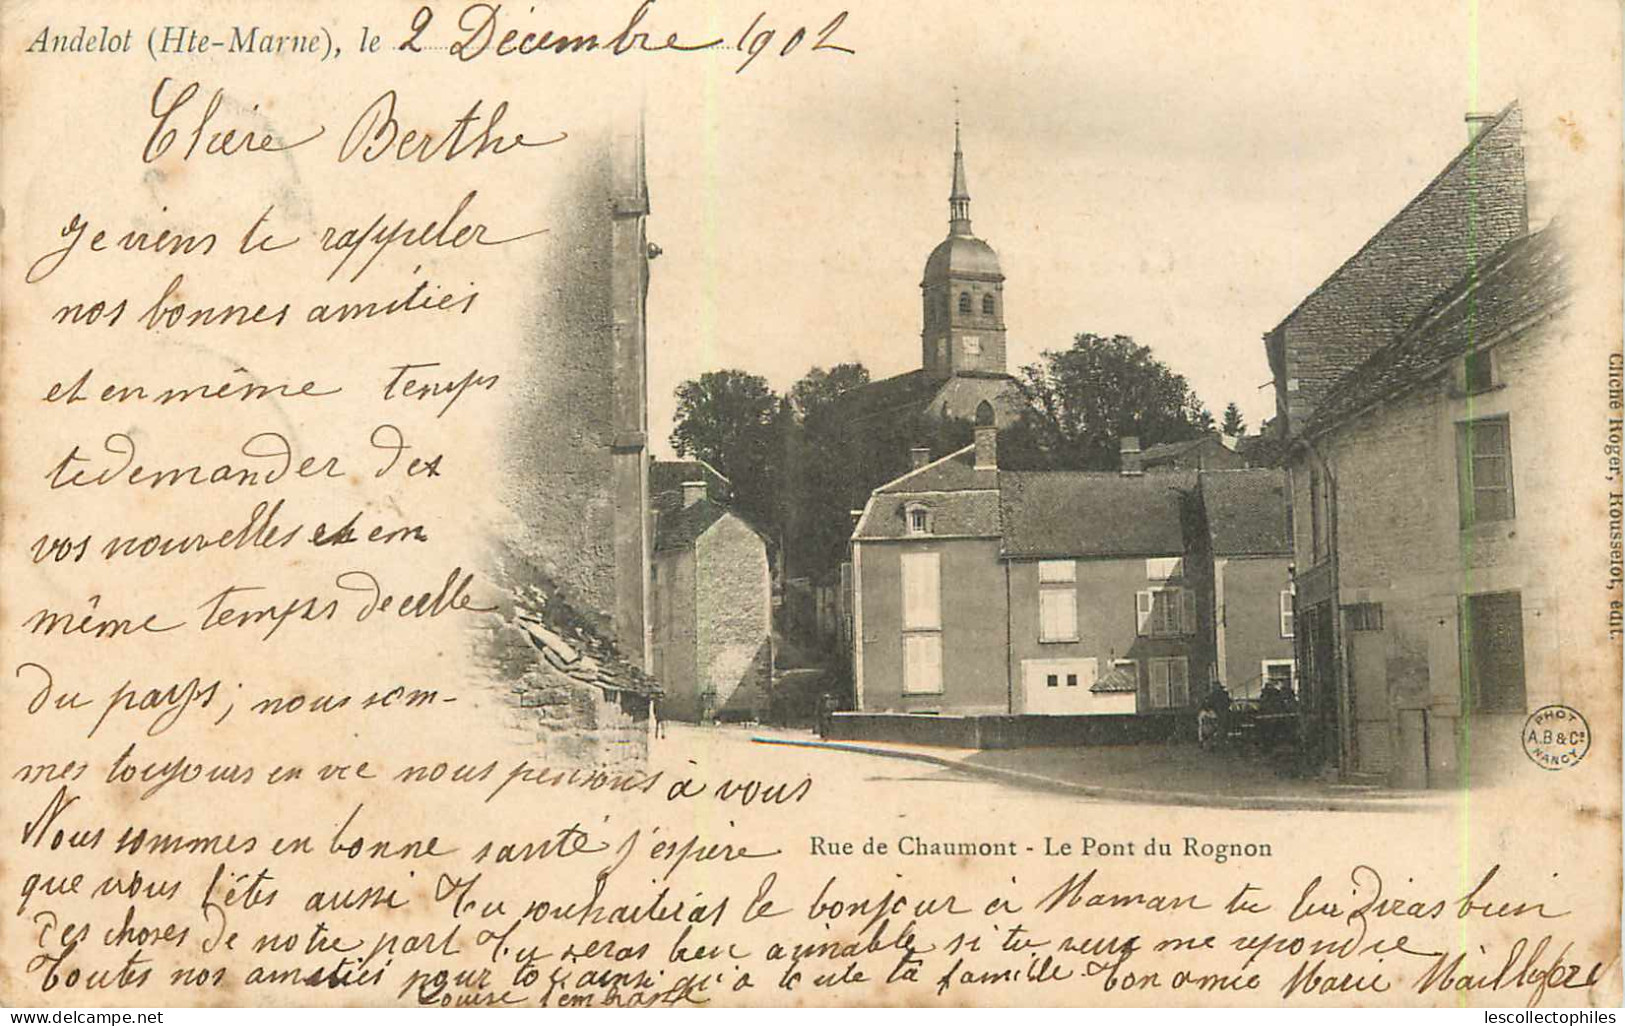 Andelot (Hte-Marne), le 2 Décembre 1902
Chère Berthe
Je viens te rappeler
nos bonnes amitiés
et en même temps
te demander des
vos nouvelles et en
même temps de celle
du pays; nous som-
mes toujours en vie nous pensons à vous
Nous sommes en bonne santé j'espère
que vous l'êtes aussi Tu souhaiteras le bonjour à Maman tu lui diras bien
des choses de notre part Tu seras bien aimable si tu veux me repondre
Toutes nos amitiés pour toi ainsi qu'a toute ta famille Ton amie Marie
Louise t'embrasse
Rue de Chaumont - Le Pont du Rognon
Cliché Roger, Rousselot, édit.
PHOT
A.B & Cie
NANCY
delcampe.net
lescollectophiles